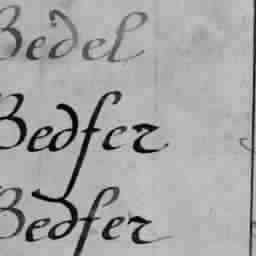 Bedel
Bedfer
Bedfer